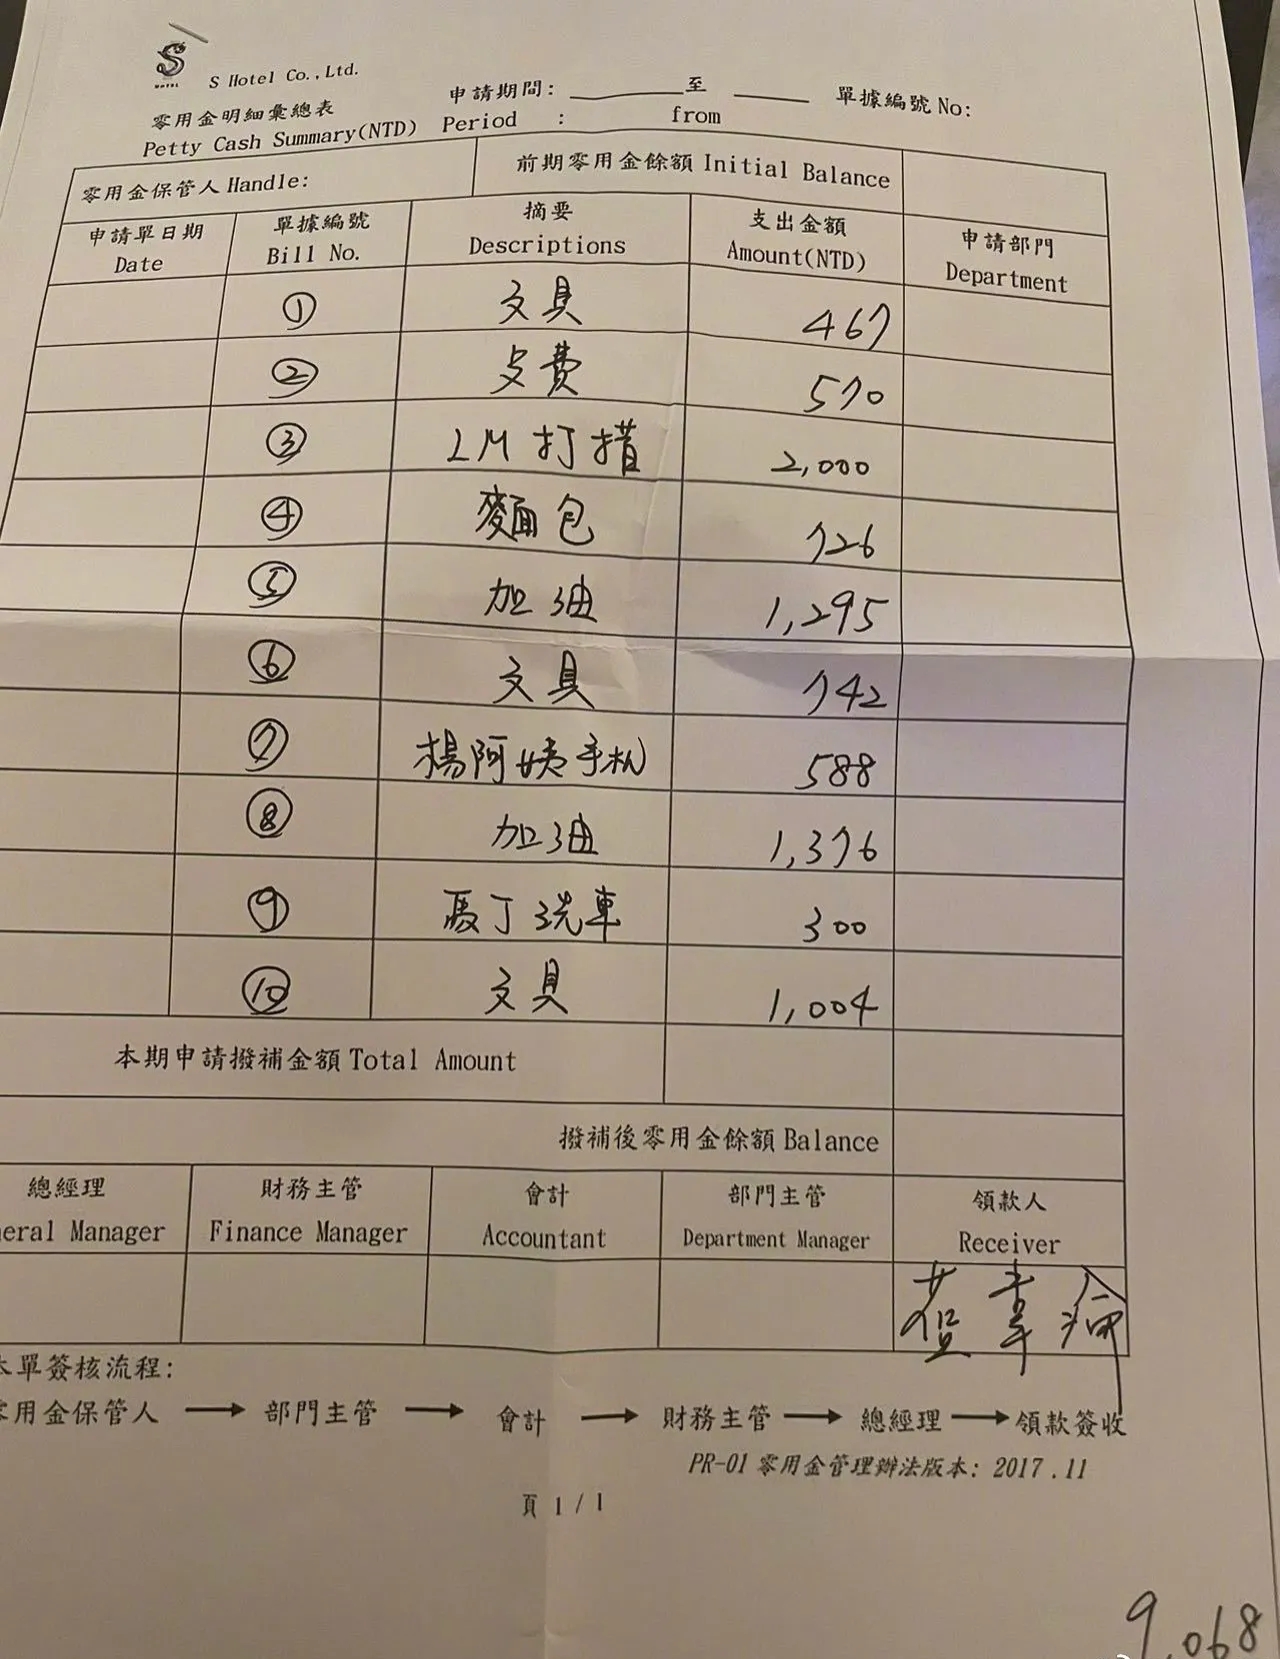 S
HOTEL
S Hotel Co.,Ltd.
零用金明細彙總表
Petty Cash Summary(NTD)
申請期間: 至 單據編號 No:
Period : from
零用金保管人 Handle: 前期零用金餘額 Initial Balance
申請單日期 單據編號 摘要 支出金額 申請部門
Date Bill No. Descriptions Amount(NTD) Department
① 文具 467
② 皮費 570
③ LM 打掃 2,000
④ 麵包 726
⑤ 加油 1,295
⑥ 文具 742
⑦ 楊阿姨手机 588
⑧ 加油 1,376
⑨ 馬丁洗車 300
⑩ 文具 1,004
本期申請撥補金額 Total Amount
撥補後零用金餘額 Balance
總經理 財務主管 會計 部門主管 領款人
eral Manager Finance Manager Accountant Department Manager Receiver
本單簽核流程:
零用金保管人 → 部門主管 → 會計 → 財務主管 → 總經理 → 領款簽收
PR-01 零用金管理辦法版本: 2017.11
頁 1 / 1
9,068